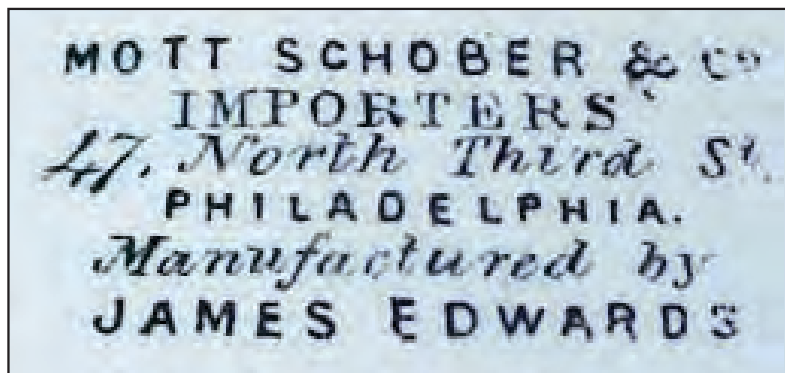 MOTT SCHOBER & Co
IMPORTERS
47, North Third St.
PHILADELPHIA.
Manufactured by
JAMES EDWARDS